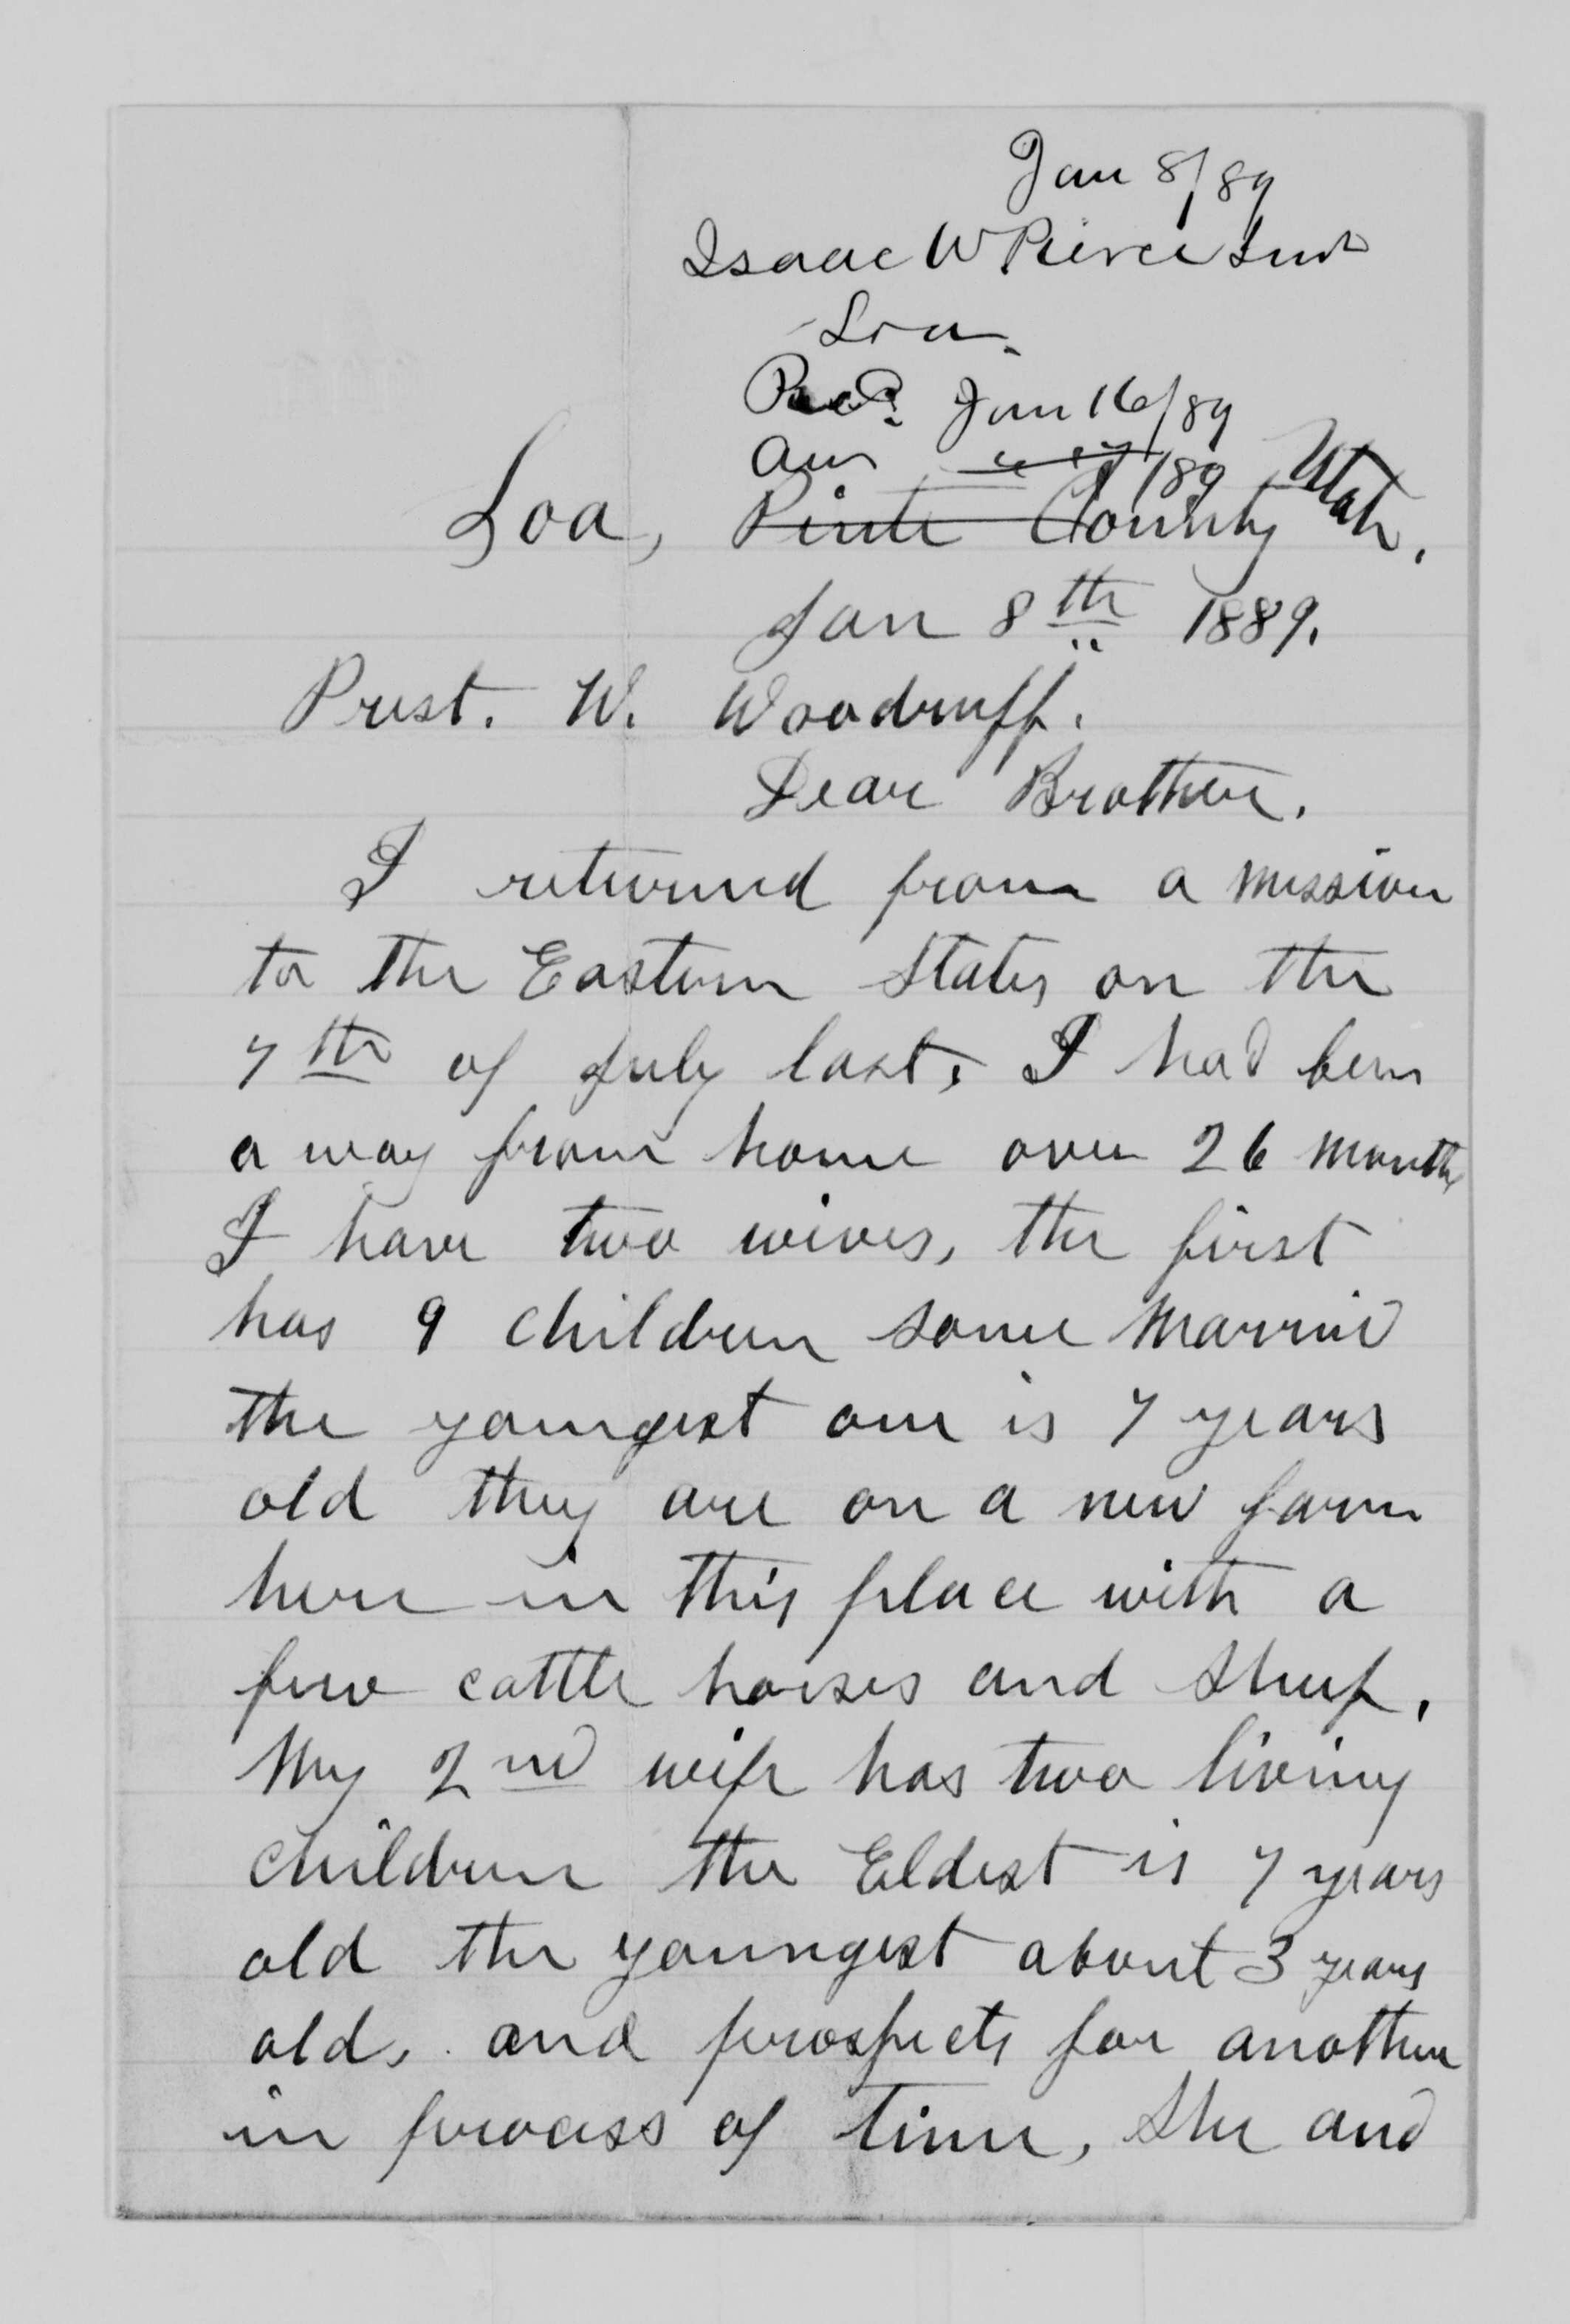 Jan 8/89
Isaac W Pierce Junr
Loa.
Recd. Jan 16/89
Ans " " /89
Loa, Piute County Utah.
Jan 8th 1889.
Prest. W. Woodruff.
Dear Brother.
I returned from a mission
to the Eastern States on the
7th of July last, I had been
a way from home over 26 months
I have two wives, the first
has 9 children some married
the youngest one is 7 years
old they are on a new farm
here in this place with a
few cattle horses and sheep.
My 2nd wife has two living
children the Eldest is 7 years
old the youngest about 3 years
old, and prospects for another
in process of time, She and